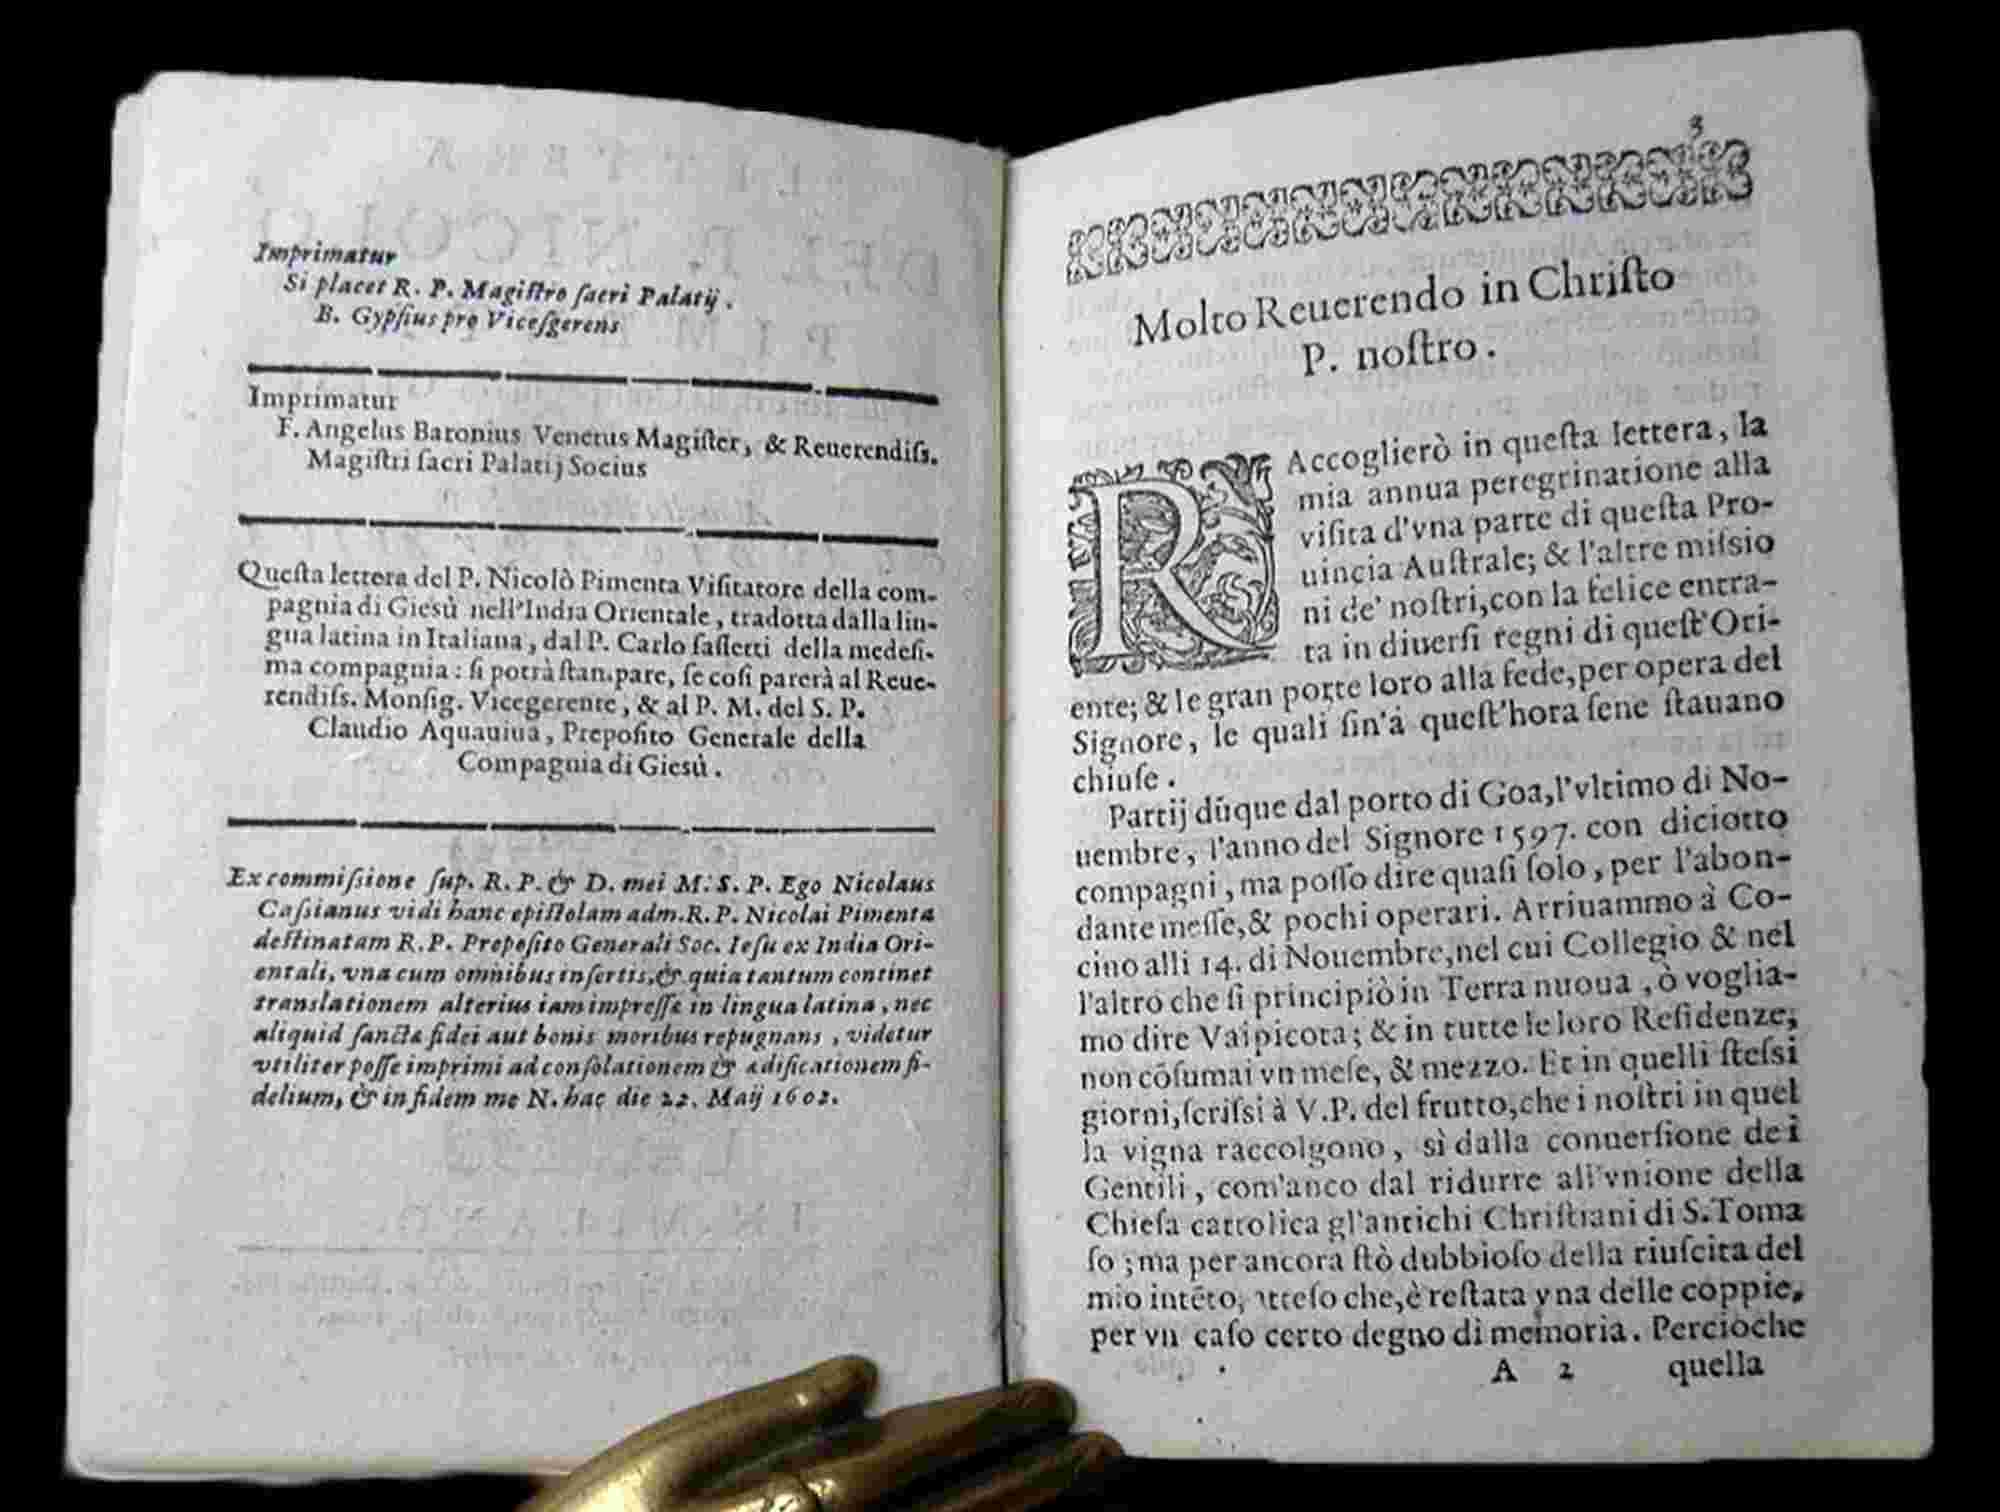 Imprimatur
Si placet R. P. Magiſtro ſacri Palatij.
B. Gypſius pro Viceſgerens
Imprimatur
F. Angelus Baronius Venetus Magiſter, & Reuerendiſs.
Magiſtri ſacri Palatij Socius
Queſta lettera del P. Nicolò Pimenta Viſitatore della com-
pagnia di Gieſù nell'India Orientale, tradotta dalla lin-
gua latina in Italiana, dal P. Carlo ſaſſetti della medeſi-
ma compagnia: ſi potrà ſtampare, ſe coſi parerà al Reue-
rendiſs. Monſig. Vicegerente, & al P. M. del S. P.
Claudio Aquauiua, Prepoſito Generale della
Compagnia di Gieſù.
Ex commiſsione ſup. R. P. & D. mei M. S. P. Ego Nicolaus
Caſsianus vidi hanc epiſtolam adm. R. P. Nicolai Pimenta
deſtinatam R. P. Prepoſito Generali Soc. Ieſu ex India Ori-
entali, vna cum omnibus inſertis, & quia tantum continet
translationem alterius iam impreſſæ in lingua latina, nec
aliquid ſanctæ fidei aut bonis moribus repugnans, videtur
vtiliter poſſe imprimi ad conſolationem & ædificationem fi-
delium, & in fidem me N. hac die 22. Maij 1602.
3
Molto Reuerendo in Chriſto
P. noſtro.
RAccoglierò in queſta lettera, la
mia annua peregrinatione alla
viſita d'vna parte di queſta Pro-
uincia Auſtrale; & l'altre miſsio
ni de' noſtri, con la felice entra-
ta in diuerſi regni di queſt'Ori-
ente; & le gran porte loro alla fede, per opera del
Signore, le quali ſin'à queſt'hora ſene ſtauano
chiuſe.
Partij dũque dal porto di Goa, l'vltimo di No-
uembre, l'anno del Signore 1597. con diciotto
compagni, ma poſſo dire quaſi ſolo, per l'abon-
dante meſſe, & pochi operari. Arriuammo à Co-
cino alli 14. di Nouembre, nel cui Collegio & nel
l'altro che ſi principiò in Terra nuoua, ò voglia-
mo dire Vaipicota; & in tutte le loro Reſidenze,
non cõſumai vn meſe, & mezzo. Et in quelli ſteſsi
giorni, ſcriſsi à V.P. del frutto, che i noſtri in quel
la vigna raccolgono, sì dalla conuerſione dei
Gentili, com'anco dal ridurre all'vnione della
Chieſa cattolica gl'antichi Chriſtiani di S. Toma
ſo; ma per ancora ſtò dubbioſo della riuſcita del
mio intẽto, atteſo che, è reſtata vna delle coppie,
per vn caſo certo degno di memoria. Percioche
A 2 quella